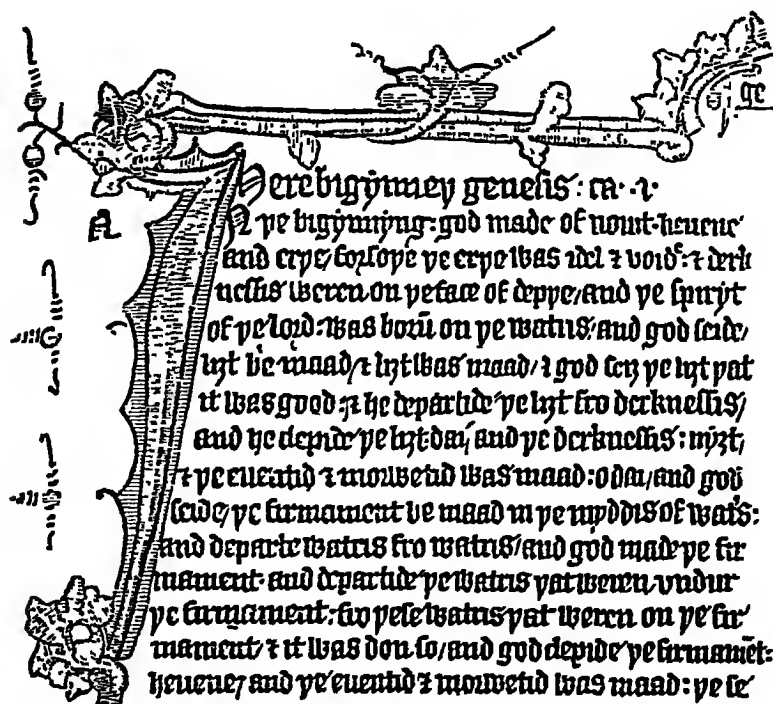 ge
Here bigynney genesis : ca · i ·
In ye bigynnyng : god made of nouzt · heuene
and erye / forsoye ye erye was idel ⁊ void ⁊ derk
nessis weren on ye face of deppe / and ye spiryt
of ye lord : was borū on ye watris / and god seide /
lyzt be maad / ⁊ lyzt was maad / ⁊ god seiz ye lyzt yat
it was good : ⁊ he departide ye lyzt fro derknessis /
and he clepide ye lyzt · dai / and ye derknessis : nyzt /
⁊ ye euentid ⁊ morwetid was maad : o dai / and god
seide / ye firmament be maad in ye myddis of wat's :
and departe watris fro watris / and god made ye fir
mament · and departide ye watris yat weren vndur
ye firmament : fro yese watris yat weren on ye fir
mament / ⁊ it was don so / and god clepide ye firmamēt :
heuene / and ye euentid ⁊ morwetid was maad : ye se